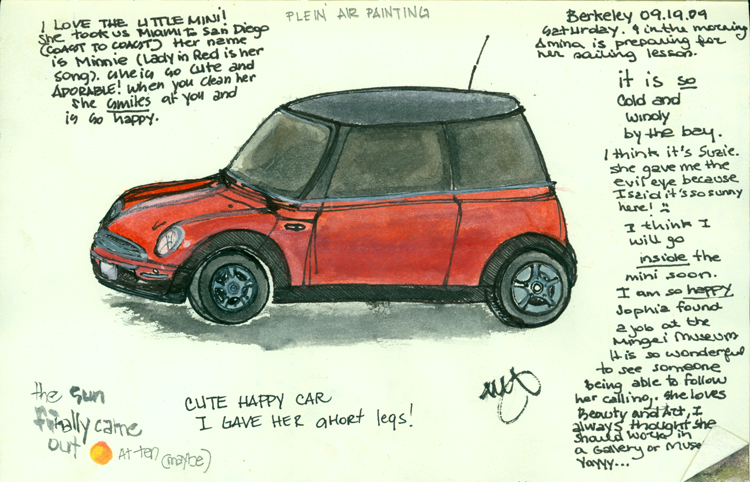 I LOVE THE LITTLE MINI!
She took us MIAMI to SAN DIEGO
(COAST TO COAST) Her name
is Minnie (Lady in Red is her
song). She is so cute and
ADORABLE! When you clean her
she smiles at you and
is so happy.
PLEIN AIR PAINTING
Berkeley 09.19.09
Saturday. 9 in the morning
Amina is preparing for
her sailing lesson.
it is so
cold and
windy
by the bay.
I think it's Suzie.
she gave me the
evil eye because
I said it's so sunny
here!
I think I
will go
inside the
mini soon.
I am so happy
Sophia found
a job at the
Mingei Museum
It is so wonderful
to see someone
being able to follow
her calling. She loves
Beauty and Art, I
always thought she
should work in
a Gallery or Muse
Yayyy...
CUTE HAPPY CAR
I GAVE HER short legs!
the sun
finally came
out
At ten (maybe)